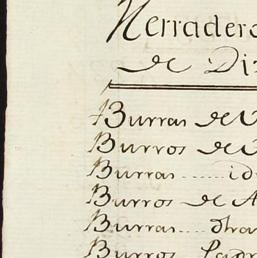 Herradero
de Di
Burras de
Burros de
Burras ...... id
Burros de A
Burras.... 
Burros